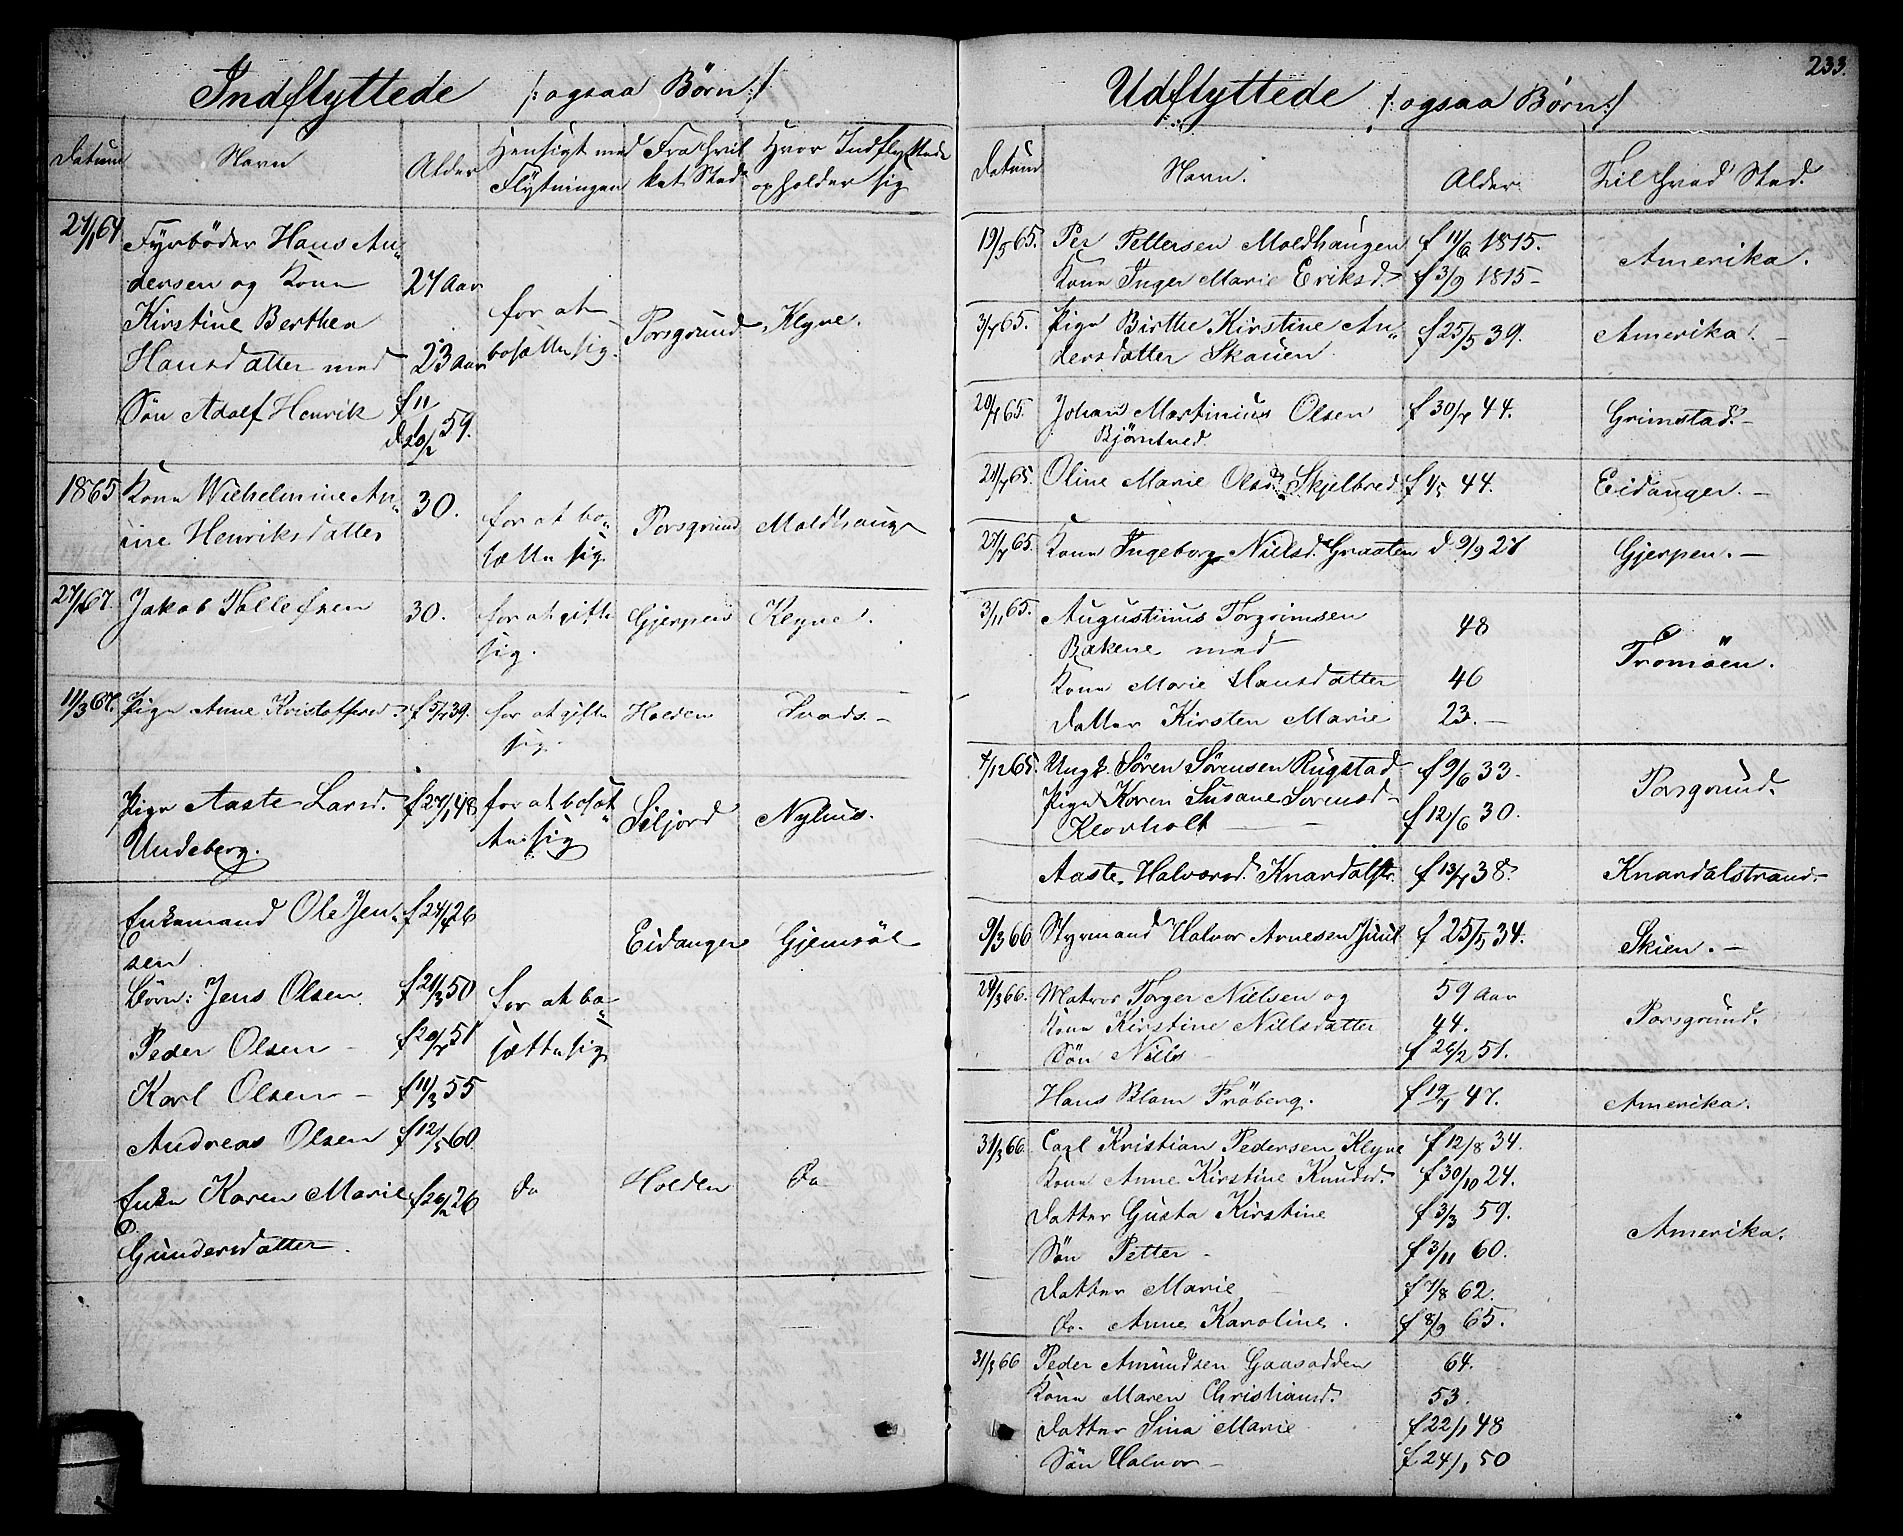 Indflyttede /: ogsaa Børn :/
Datum Navn Alder Hensigt med Flytningen Fra hvilket Sted Hvor Indflyttede opholder sig
27/1 64 Fyrbøder Hans An-
dersen og Kone 27 Aar
Kirstine Berthea for at Porsgrund Klyve.
Hansdatter med 23 Aar bosætte sig.
Søn Adolf Henrik f 11
d 20/2 59.
1865 Kone Wilhelmine An- 30. for at bo- Porsgrund Moldhaug
ine Henriksdatter sætte sig
27/ 67. Jakob Tollefsen 30. for at gifte Gjerpen Klyve.
sig.
11/3 67. Pige Anne Kristoffersd. f 5/7 39. for at gifte Holden
sig.
Pige Aaste Larsd. f 27/1 48 for at bosæt- Siljord Nyhus.
Undeberg. te sig
Enkemand Ole Jen- f 24/4 26 Eidanger Gjemsøe
sen
Børn: Jens Olsen f 21/3 50 for at bo-
Peder Olsen – f 20/7 51 sætte sig
Karl Olsen – f 11/3 55
Andreas Olsen f 12/5 60.
Enke Karen Marie f 26/2 26 do Holden Do
Gundersdatter.
Udflyttede /: ogsaa Børn :/
233.
Datum Navn. Alder Til hvad Sted.
19/5 65. Per Pettersen Moldhaugen f 11/6 1815. Amerika.
Kone Inger Marie Eriksd. f 3/9 1815 –
3/7 65. Pige Birthe Kirstine An- f 25/5 39. Amerika. –
dersdatter Skauen.
20/7 65. Johan Martinius Olsen f 30/7 44. Grimstad. –
Bjørntved.
24/7 65. Oline Marie Olsd. Skjelbred f 1/5 44. Eidanger. –
27/7 65. Kone Ingeborg Nielsd. Graaten d 9/9 27 Gjerpen. –
3/11 65. Augustinus Torgrimsen 48 Tromöen.
Bakene med
Kone Marie Hansdatter 46
Datter Kirsten Marie 23. –
7/12 65. Ungk. Søren Sørensen Rugstad f 9/6 33. Porsgrund.
Pige Karen Susane Sorensd. – f 12/6 30.
Klovholt –
Aaste Halvorsd. Knardalstr. f 13/7 38. Knardalstrand –
9/3 66 Styrmand Halvor Arnesen Juul f 25/5 34. Skien. –
24/3 66. Matros Torger Nielsen og 59 Aar Porsgrund.
Kone Kirstine Nillsdatter 44.
Søn Nills – f 26/2 51.
Hans Blom Fröberg. f 19/1 47. Amerika.
31/3 66 Carl Kristian Pedersen Klyve f 12/8 34.
Kone Anne Kirstine Knudsd. f 30/10 24.
Datter Gusta Kirstine f 3/3 59.
Søn Petter – f 3/11 60. Amerika.
Datter Marie – f 7/8 62.
Do. Anne Karoline. f 8/9 65.
31/3 66 Peder Amundsen Gaasodden 64.
Kone Maren Christiansd. 53.
Datter Sina Marie f 22/1 48
Søn Halvor – f 24/1 50